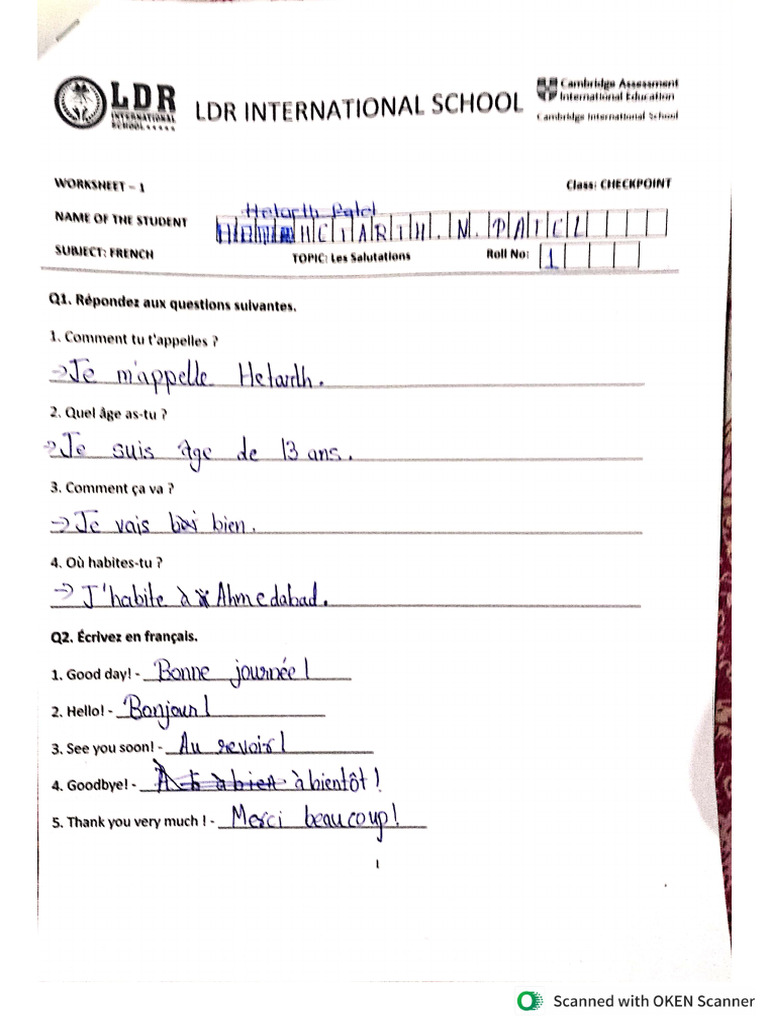 LDR
INTERNATIONAL
SCHOOL
LDR INTERNATIONAL SCHOOL
Cambridge Assessment
International Education
Cambridge International School
WORKSHEET – 1
Class: CHECKPOINT
Hetarth Patel
NAME OF THE STUDENT
SUBJECT: FRENCH
TOPIC: Les Salutations
Roll No: 1
Q1. Répondez aux questions suivantes.
1. Comment tu t'appelles ?
→ Je m'appelle Hetarth.
2. Quel âge as-tu ?
→ Je suis âge de 13 ans.
3. Comment ça va ?
→ Je vais bien.
4. Où habites-tu ?
→ J'habite à Ahmedabad.
Q2. Écrivez en français.
1. Good day! - Bonne journée!
2. Hello! - Bonjour!
3. See you soon! - Au revoir!
4. Goodbye! - à bientôt!
5. Thank you very much ! - Merci beaucoup!
1
Scanned with OKEN Scanner